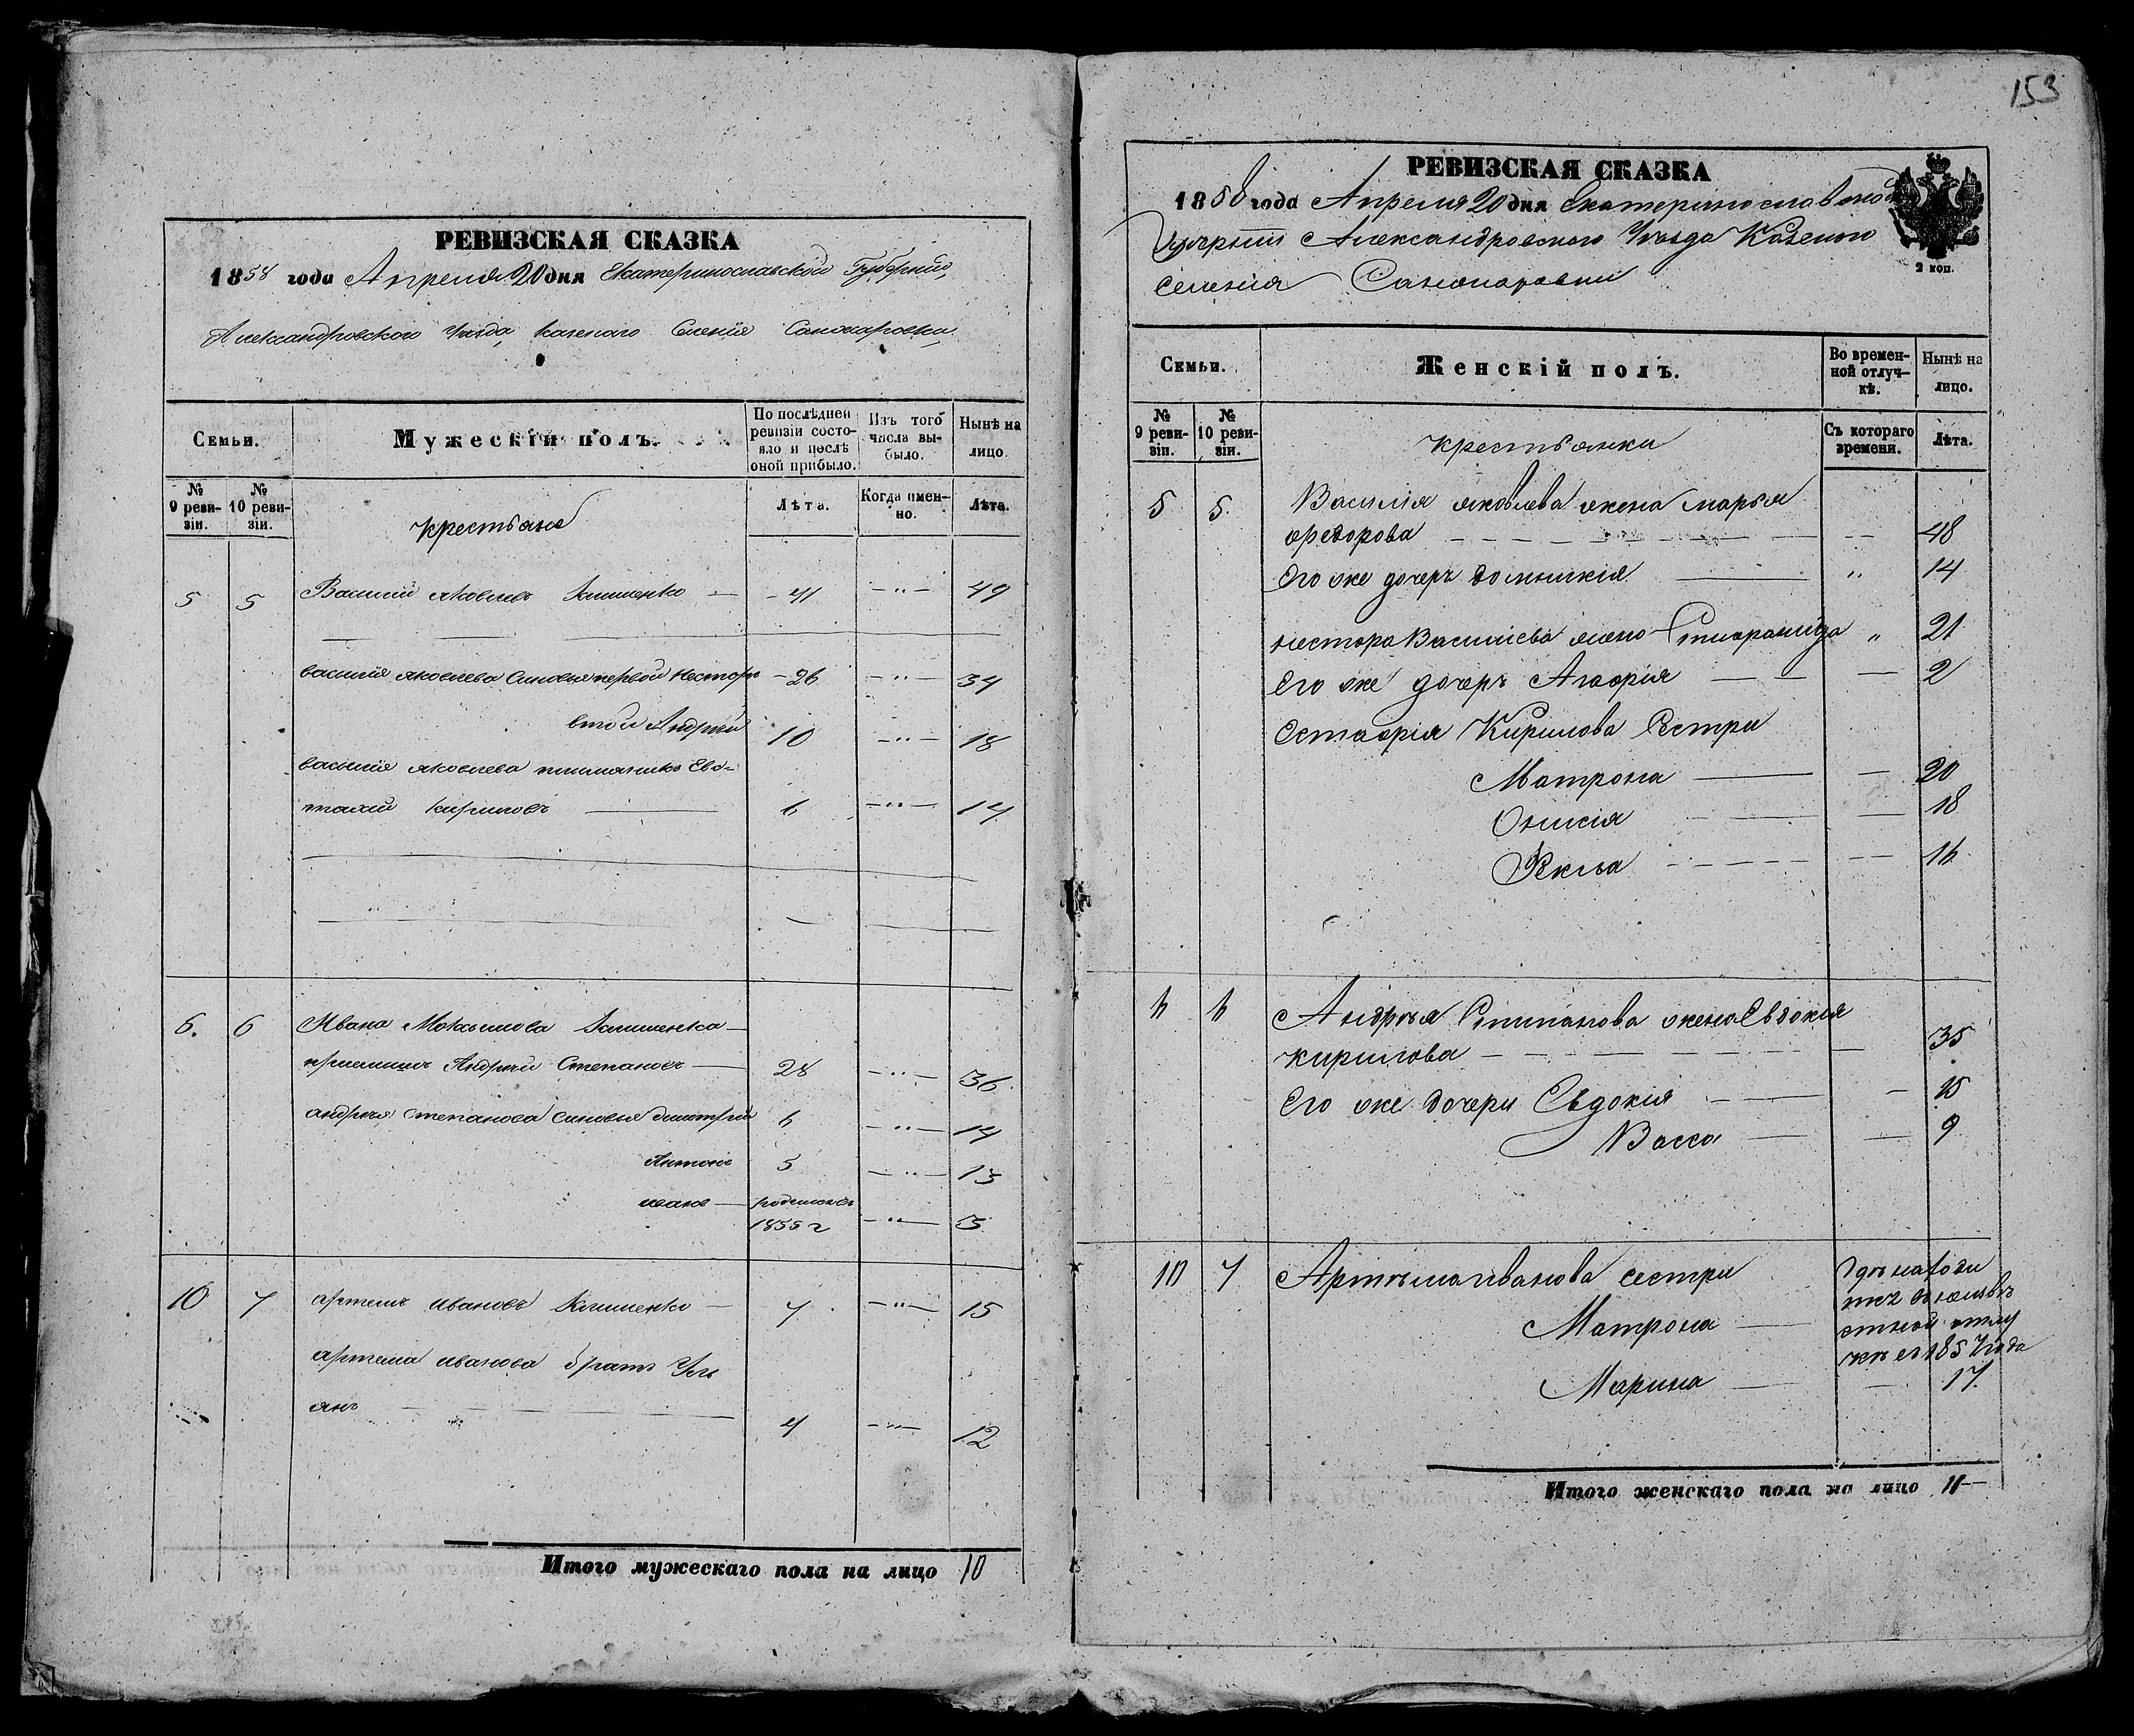 РЕВИЗСКАЯ СКАЗКА
1858 года Апреля 20 дня Екатеринославской Губернии,
Александровского Уезда, казеного Селенія Санжаровки,
Семьи.
Мужескій полъ.
По последней ревизіи состояло и после оной прибыло.
Изъ того числа выбыло.
Ныне на лицо.
№ 9 ревизіи.
№ 10 ревизіи.
крестьане
Лѣта.
Когда именно.
Лѣта.
5 5 Василий Яковлевъ Климченко — 41 — " — 49
василія яковлева синовья первой Несторъ — 26 — " — 34
втой Андрѣй 10 — " — 18
василія яковлева племяникъ Евс-
тафий кириловъ 6 — " — 14
6. 6 Ивана Максимова
приемишъ Андрѣй Степановъ 28 — " — 36
андрѣя степанова синовья дмитрій 6 — " — 14
Антонъ 5 — " — 13
иванъ — родился въ
1855 г — " — 3
10 7 артемъ ивановъ 7 — " — 15
артема иванова братъ Уль
янъ 4 — " — 12
Итого мужескаго пола на лицо 10
153
РЕВИЗСКАЯ СКАЗКА
1858 года Апреля 20 дня Екатеринославской
Губерніи Александровского Уѣзда Казеного
селенія Санжаровки
2 коп.
Семьи.
Женскій полъ.
Во временной отлучкѣ.
Нынѣ на лицо.
№ 9 ревизіи.
№ 10 ревизіи.
крестьанки
Съ котораго времени.
Лѣта.
5 5. Василія яковлева жена марья
федорова 48
Его же дочеръ домникія " 14
нестора Василіева жена " 21
Его же дочеръ Агафія 2
Естафія Кирилова Сестри
Матрона 20
Онисія 18
Fекла 16
6 6 Андрѣя Стипанова жена Евдокія
кирилова 35
Его же дочери Евдокія 15
Васса 9
10 7 Артѣма иванова сестри
Матрона
с 1857 года
Марина 17.
Итого женскаго пола на лицо 11